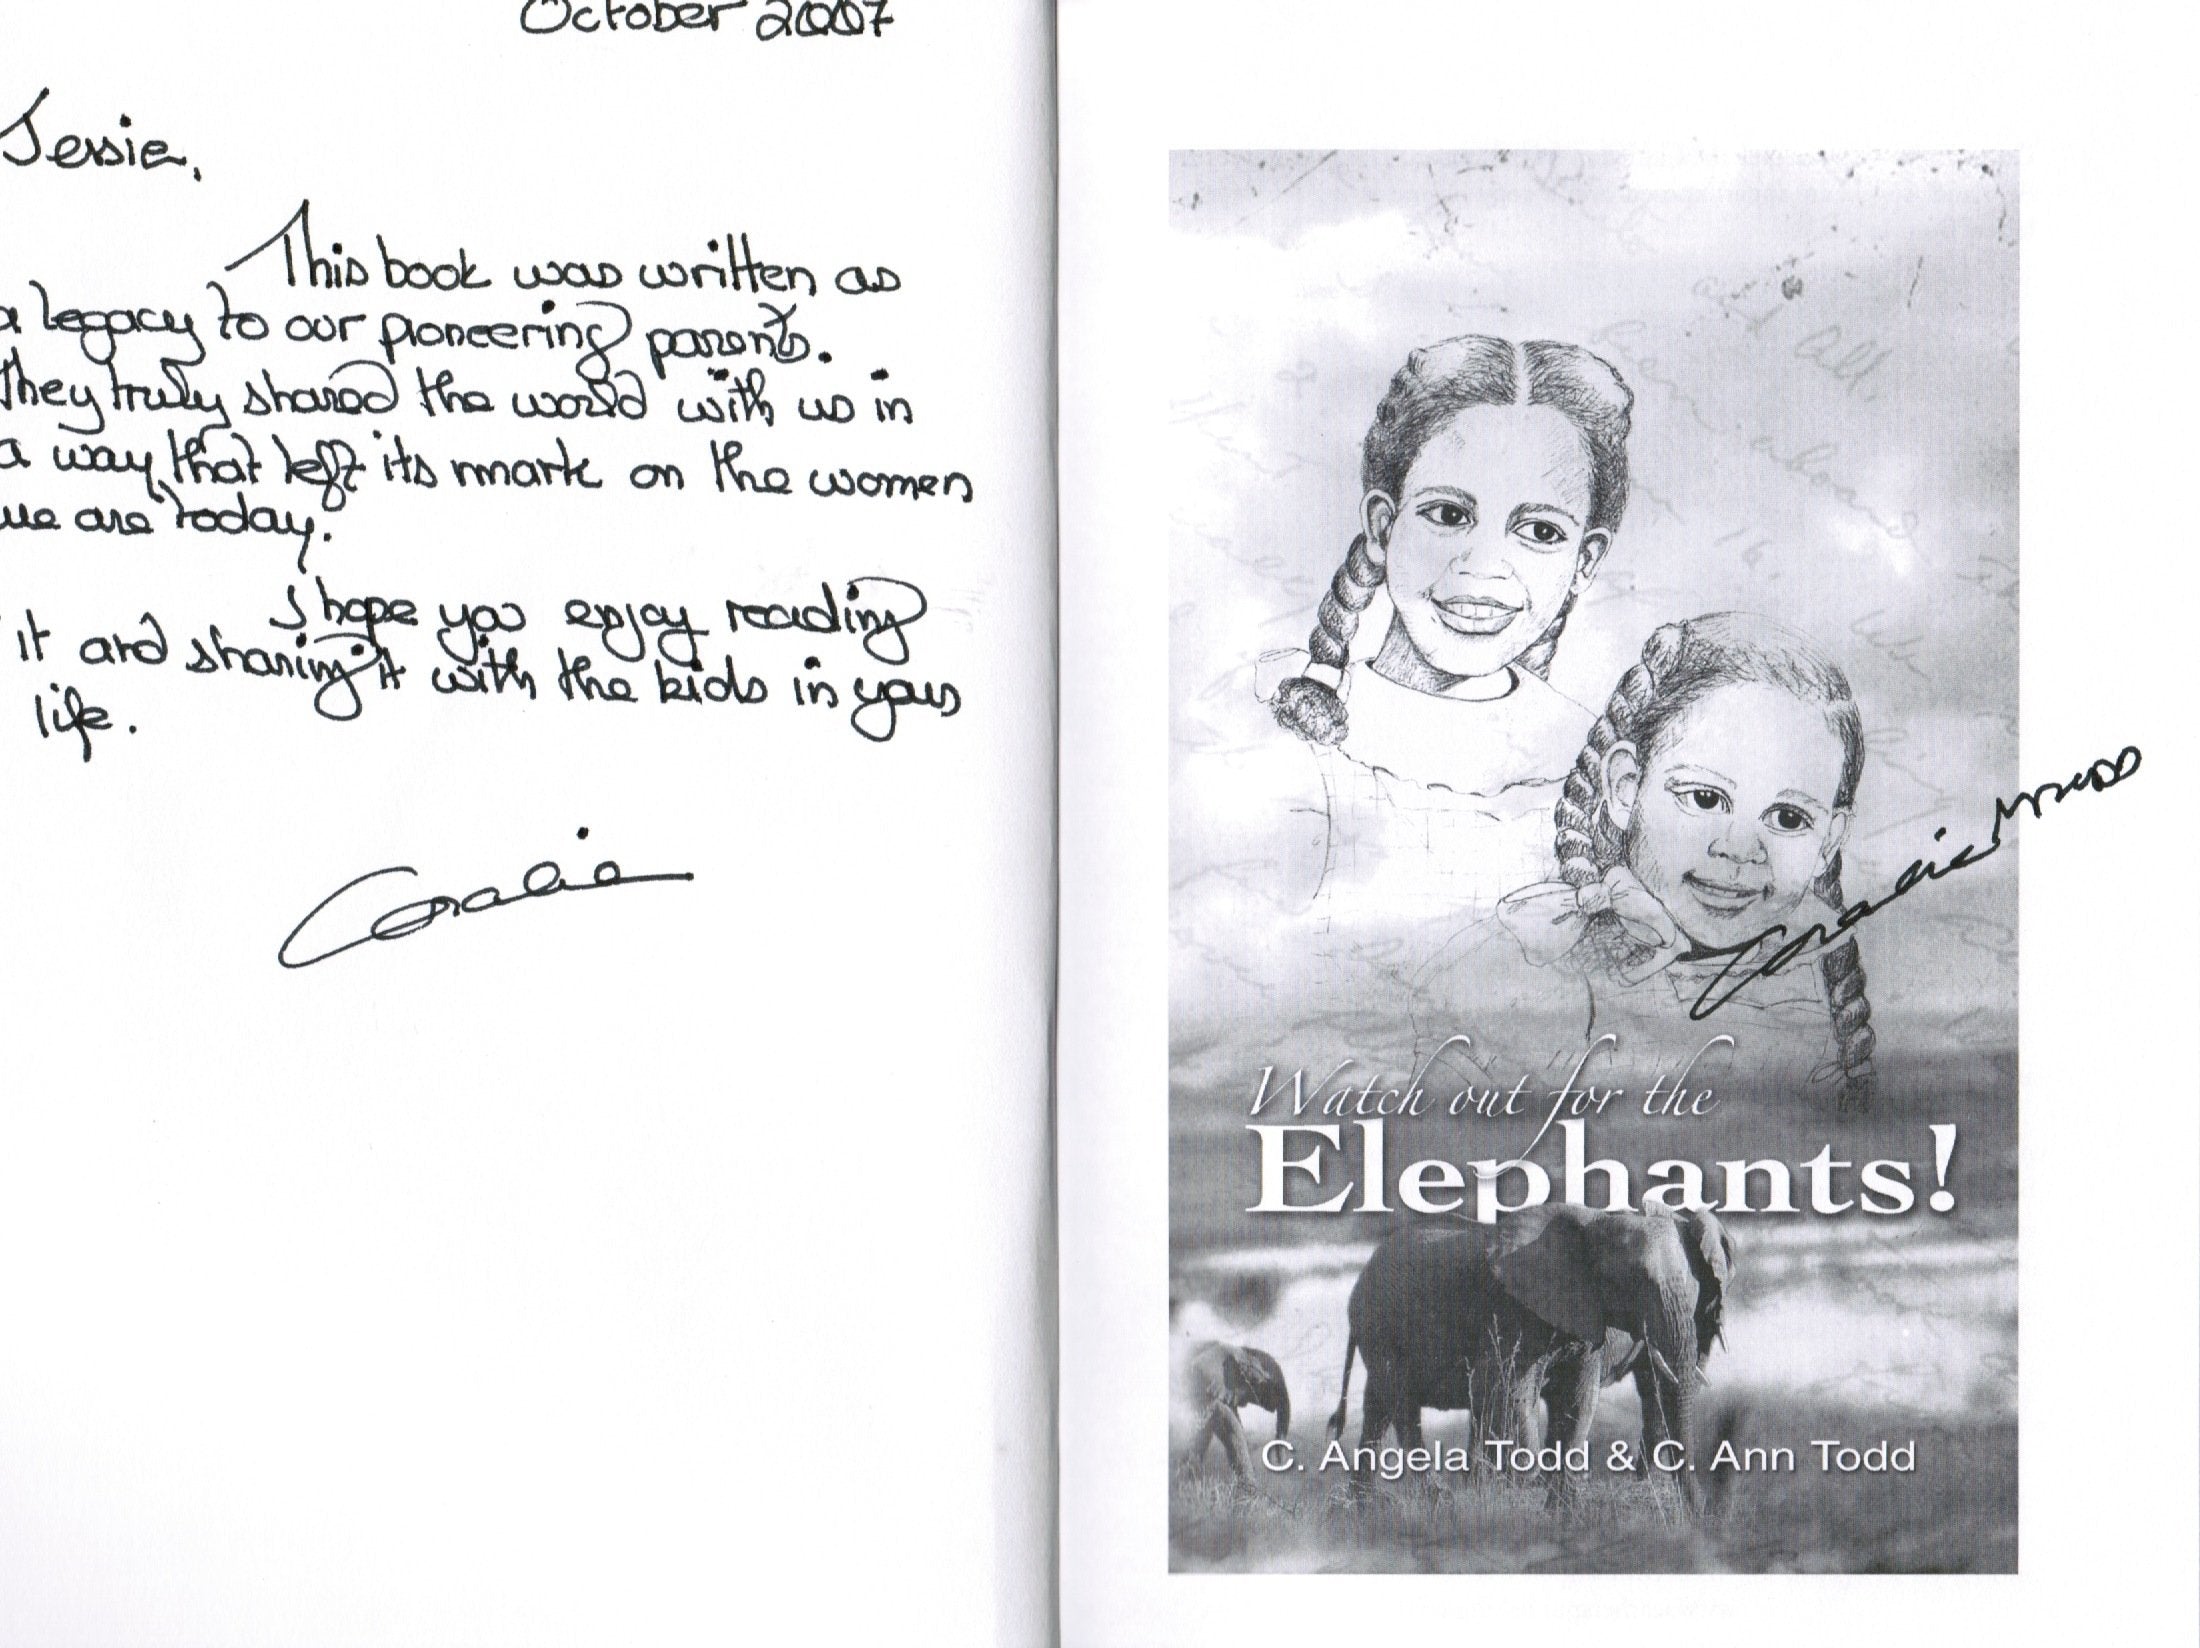 October 2007
Jessie,
This book was written as
a legacy to our pioneering parents.
They truly shared the world with us in
a way that left its mark on the women
we are today.
I hope you enjoy reading
it and sharing it with the kids in your
life.
Coralie
Watch out for the
Elephants!
C. Angela Todd & C. Ann Todd